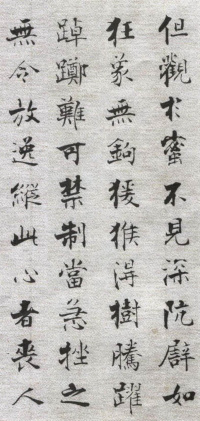 但觀於蜜不見深阬譬如
狂象無鉤猨猴得樹騰躍
踔躑難可禁制當急挫之
無令放逸縱此心者喪人